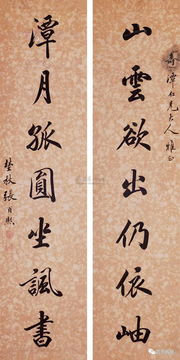 奇潭仁兄大人雅正
山雲欲出仍依岫
潭月孤圓坐諷書
張百熙